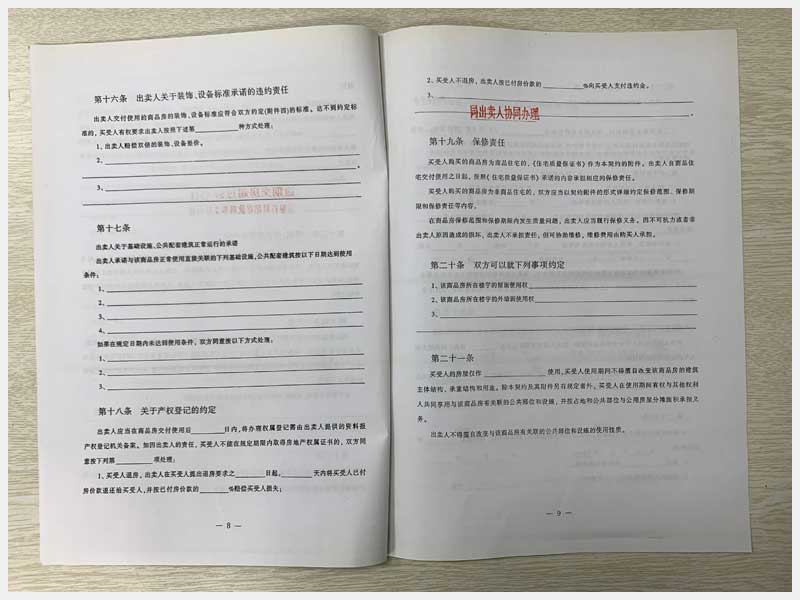 第十六条 出卖人关于装饰、设备标准承诺的违约责任
出卖人交付使用的商品房的装饰、设备标准应符合双方约定(附件四)的标准。达不到约定标
准的,买受人有权要求出卖人按照下述第________种方式处理:
1、出卖人赔偿双倍的装饰、设备差价。
2、
3、
第十七条
出卖人关于基础设施、公共配套建筑正常运行的承诺
出卖人承诺与该商品房正常使用直接关联的下列基础设施、公共配套建筑按以下日期达到使用
条件:
1、
2、
3、
4、
如果在规定日期内未达到使用条件,双方同意按以下方式处理:
1、
2、
3、
第十八条 关于产权登记的约定
出卖人应当在商品房交付使用后________日内,将办理权属登记需由出卖人提供的资料报
产权登记机关备案。如因出卖人的责任,买受人不能在规定期限内取得房地产权属证书的,双方同
意按下列第________项处理:
1、买受人退房,出卖人在买受人提出退房要求之________日起,________天内将买受人已付
房价款退还给买受人,并按已付房价款的________%赔偿买受人损失;
— 8 —
2、买受人不退房,出卖人按已付房价款的________%向买受人支付违约金。
3、
同出卖人协同办理
第十九条 保修责任
买受人购买的商品房为商品住宅的,《住宅质量保证书》作为本契约的附件。出卖人自商品住
宅交付使用之日起,按照《住宅质量保证书》承诺的内容承担相应的保修责任。
买受人购买的商品房为非商品住宅的,双方应当以契约附件的形式详细约定保修范围、保修期
限和保修责任等内容。
在商品房保修范围和保修期限内发生质量问题,出卖人应当履行保修义务。因不可抗力或者非
出卖人原因造成的损坏,出卖人不承担责任,但可协助维修,维修费用由购买人承担。
第二十条 双方可以就下列事项约定
1、该商品房所在楼宇的屋面使用权
2、该商品房所在楼宇的外墙面使用权
3、
第二十一条
买受人的房屋仅作________使用,买受人使用期间不得擅自改变该商品房的建筑
主体结构、承重结构和用途。除本契约及其附件另有规定者外,买受人在使用期间有权与其他权利
人共同享用与该商品房有关联的公共部位和设施,并按占地和公共部位与公用房屋分摊面积承担义
务。
出卖人不得擅自改变与该商品房有关联的公共部位和设施的使用性质。
— 9 —